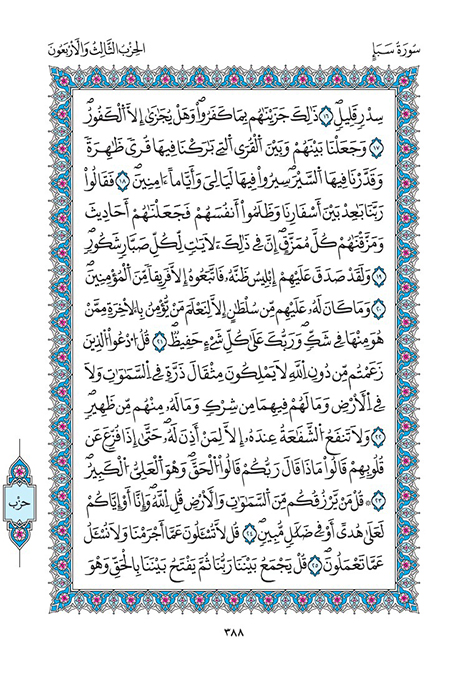 سُورَةُ سَبَإٍ
الحِزْبُ الثَّالِثُ وَالْأَرْبَعُونَ
سِدْرٖ قَلِيلٖۖ ١٦ ذَٰلِكَ جَزَيْنَٰهُم بِمَا كَفَرُواْۖ وَهَلْ يُجَٰزَىٰ إِلَّا اَ۬لْكَفُورُۖ
١٧ وَجَعَلْنَا بَيْنَهُمْ وَبَيْنَ اَ۬لْقُرَى اَ۬لتِے بَٰرَكْنَا فِيهَا قُرىٗ ظَٰهِرَةٗ
وَقَدَّرْنَا فِيهَا اَ۬لسَّيْرَۖ سِيرُواْ فِيهَا لَيَالِيَ وَأَيَّاماً ءَامِنِينَۖ ١٨ فَقَالُواْ
رَبَّنَا بَٰعِدْ بَيْنَ أَسْفَارِنَا وَظَلَمُواْ أَنفُسَهُمْ فَجَعَلْنَٰهُمْ أَحَادِيثَ
وَمَزَّقْنَٰهُمْ كُلَّ مُمَزَّقٍۖ إِنَّ فِے ذَٰلِكَ لَأٓيَٰتٖ لِّكُلِّ صَبَّارٖ شَكُورٖۖ
١٩ وَلَقَدْ صَدَقَ عَلَيْهِمْ إِبْلِيسُ ظَنَّهُۥ فَاتَّبَعُوهُ إِلَّا فَرِيقاٗ مِّنَ اَ۬لْمُؤْمِنِينَۖ
٢٠ وَمَا كَانَ لَهُۥ عَلَيْهِم مِّن سُلْطَٰنٍ إِلَّا لِنَعْلَمَ مَنْ يُّؤْمِنُ بِالْأٓخِرَةِ مِمَّنْ
هُوَ مِنْهَا فِے شَكّٖۖ وَرَبُّكَ عَلَىٰ كُلِّ شَےْءٍ حَفِيظٞۖ ٢١ قُلُ اُ۟دْعُواْ اُ۬لذِينَ
زَعَمْتُم مِّن دُونِ اِ۬للَّهِ لَا يَمْلِكُونَ مِثْقَالَ ذَرَّةٖ فِے اِ۬لسَّمَٰوَٰتِ وَلَا
فِے اِ۬لْأَرْضِ وَمَا لَهُمْ فِيهِمَا مِن شِرْكٖ وَمَا لَهُۥ مِنْهُم مِّن ظَهِيرٖۖ
٢٢ وَلَا تَنفَعُ اُ۬لشَّفَٰعَةُ عِندَهُۥ إِلَّا لِمَنْ أَذِنَ لَهُۥۖ حَتَّىٰ إِذَا فُزِّعَ عَن
قُلُوبِهِمْ قَالُواْ مَاذَا قَالَ رَبُّكُمْ قَالُواْ اُ۬لْحَقَّۖ وَهُوَ اَ۬لْعَلِيُّ اُ۬لْكَبِيرُۖ
٢٣ ۞ قُلْ مَنْ يَّرْزُقُكُم مِّنَ اَ۬لسَّمَٰوَٰتِ وَالْأَرْضِ قُلِ اِ۬للَّهُۖ وَإِنَّا أَوْ إِيَّاكُمْ
لَعَلَىٰ هُدىً أَوْ فِے ضَلَٰلٖ مُّبِينٖۖ ٢٤ قُل لَّا تُسْـَٔلُونَ عَمَّا أَجْرَمْنَا وَلَا نُسْـَٔلُ
عَمَّا تَعْمَلُونَۖ ٢٥ قُلْ يَجْمَعُ بَيْنَنَا رَبُّنَا ثُمَّ يَفْتَحُ بَيْنَنَا بِالْحَقِّۖ وَهُوَ
حزب
٣٨٨